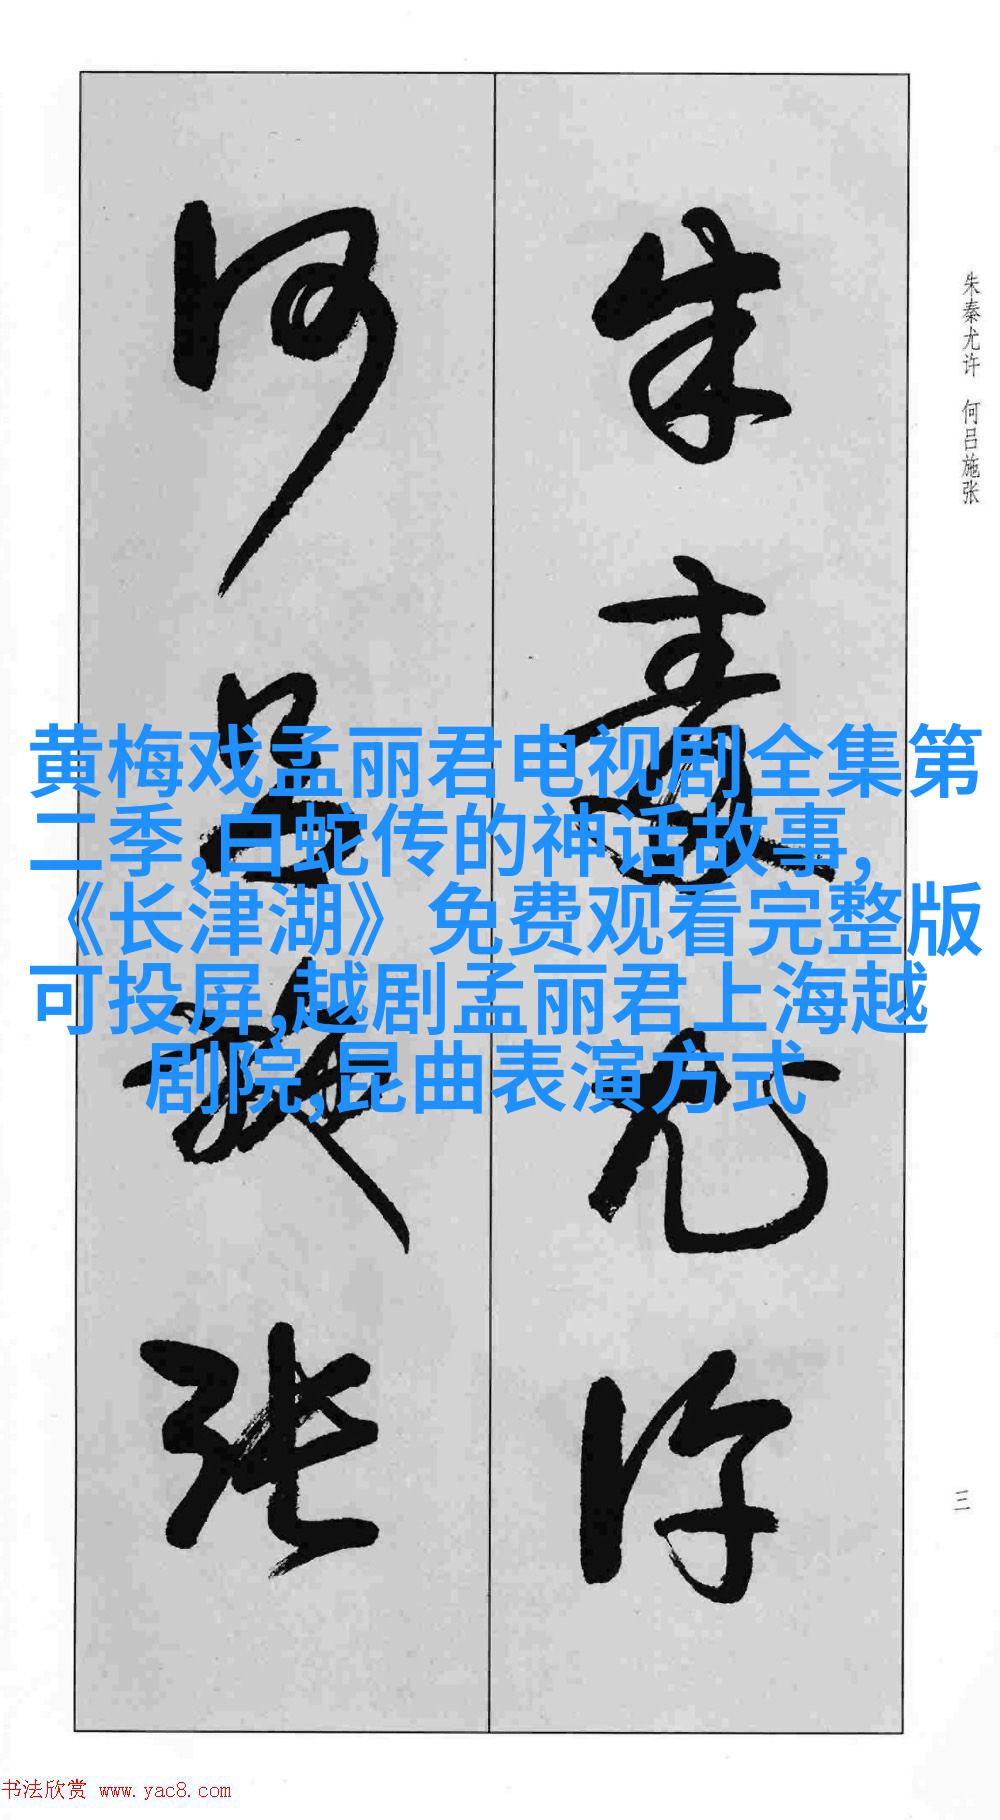 朱秦尤许 何吕施张
朱秦尤许
何吕施张
黄梅戏孟丽君电视剧全集第
二季,白蛇传的神话故事,
《长津湖》免费观看完整版
可投屏,越剧孟丽君上海越
剧院,昆曲表演方式
三
书法欣赏 www.yac8.com